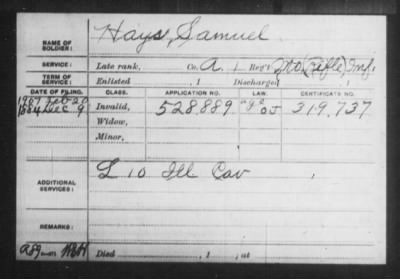 NAME OF SOLDIER: Hays, Samuel
SERVICE: Late rank, Co. A, 1 Reg't Mo (Rifle) Inf.
TERM OF SERVICE: Enlisted , 1 Discharged , 1
DATE OF FILING. CLASS. APPLICATION NO. LAW. CERTIFICATE NO.
1907 Feb 20
1884 Dec 9 Invalid, 528.889 319.737
Widow,
Minor,
ADDITIONAL SERVICES: L 10 Ill Cav
REMARKS:
Died , 1 , at